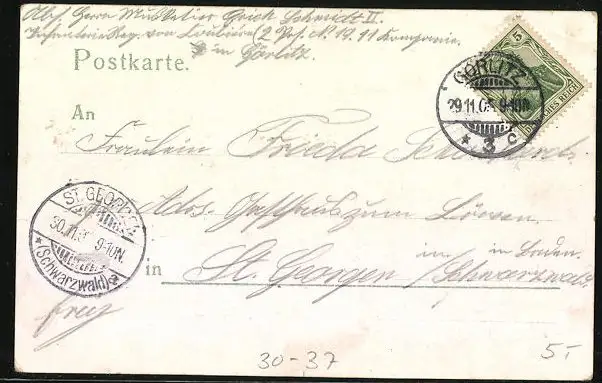 Abs. Herr Musketier Erich Schmidt II.
Infanterie Reg. von (2 Pos.) N. 19. 11 Kompanie.
in Görlitz.
Postkarte.
An
Fräulein Frieda
Adr. Gasthaus zum Löwen.
in Baden.
in St. Georgen /Schwarzwald.
frey
5
DEUTSCHES REICH
GÖRLITZ
29.11.05. 9-10N.
* 3 c
ST. GEORGEN
30.11. 9-10N.
* (Schwarzwald)
30-37
5.-